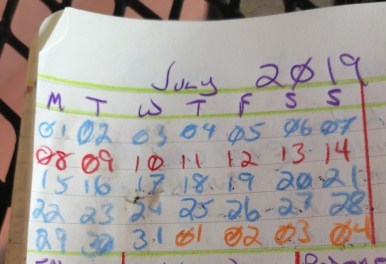 July 2019
M T W T F S S
01 02 03 04 05 06 07
08 09 10 11 12 13 14
15 16 17 18 19 20 21
22 23 24 25 26 27 28
29 30 31 01 02 03 04